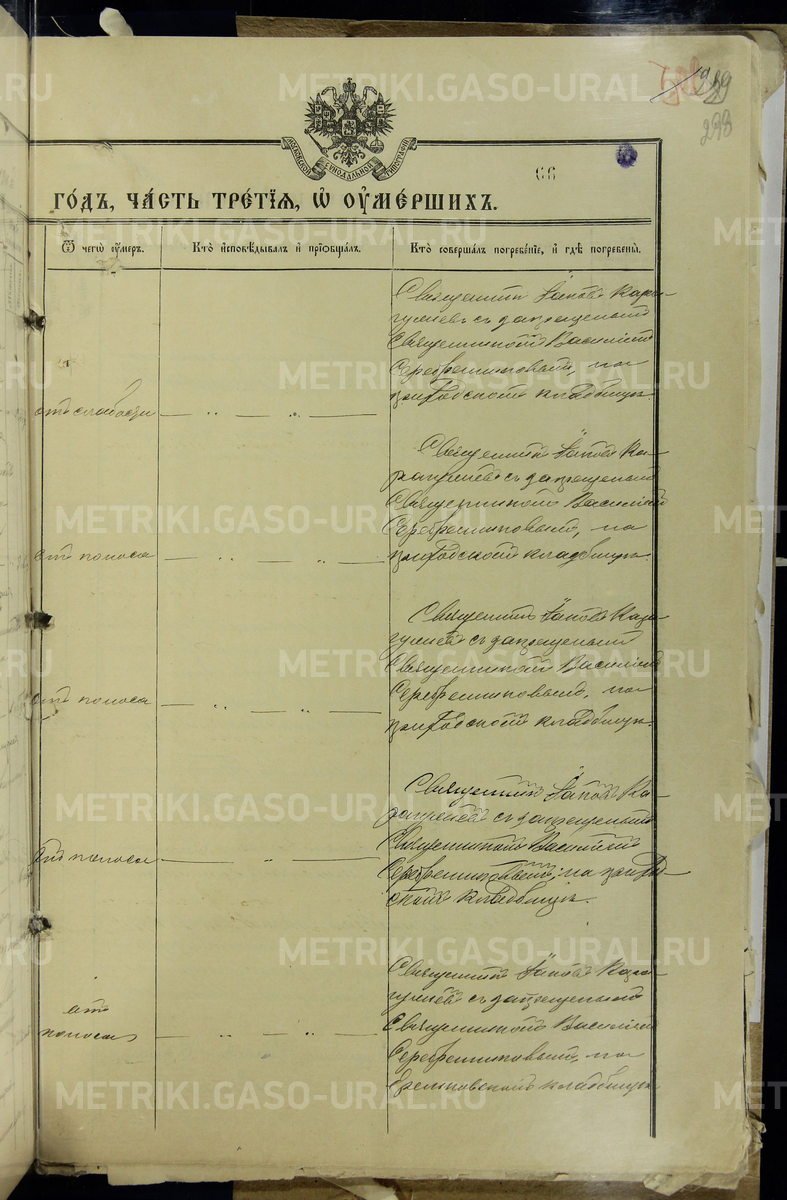 293
66
МОСКОВСКОЙ СѴНОДАЛЬНОЙ ТИПОГРАФІИ
ГО́ДЪ, ЧА́СТЬ ТРЕ́ТІѦ, Ѡ҆ ОУ҆МЕ́РШИХЪ.
Ѿ чегѡ̀ оу҆́меръ.
Кто̀ и҆сповѣ́дывалъ и҆ прїѡбща́лъ.
Кто̀ соверша́лъ погребе́нїе, и҆ гдѣ̀ погребены̀.
Священникъ Іаковъ
съ запрещенымъ
Священникомъ Василіемъ
Серебренниковымъ, на
приходскомъ кладбищѣ.
отъ слабости
Священникъ Іаковъ
съ запрещенымъ
Священникомъ Василіемъ
Серебренниковымъ, на
приходскомъ кладбищѣ.
отъ поноса
Священникъ Іаковъ
съ запрещенымъ
Священникомъ Василіемъ
Серебренниковымъ, на
приходскомъ кладбищѣ.
отъ поноса
Священникъ Іаковъ
съ запрещенымъ
Священникомъ Василіемъ
Серебренниковымъ, на приход-
скомъ кладбищѣ.
отъ поноса
Священникъ Іаковъ
съ запрещенымъ
Священникомъ Василіемъ
Серебренниковымъ, на
кладбищѣ
отъ
поноса
METRIKI.GASO-URAL.RU